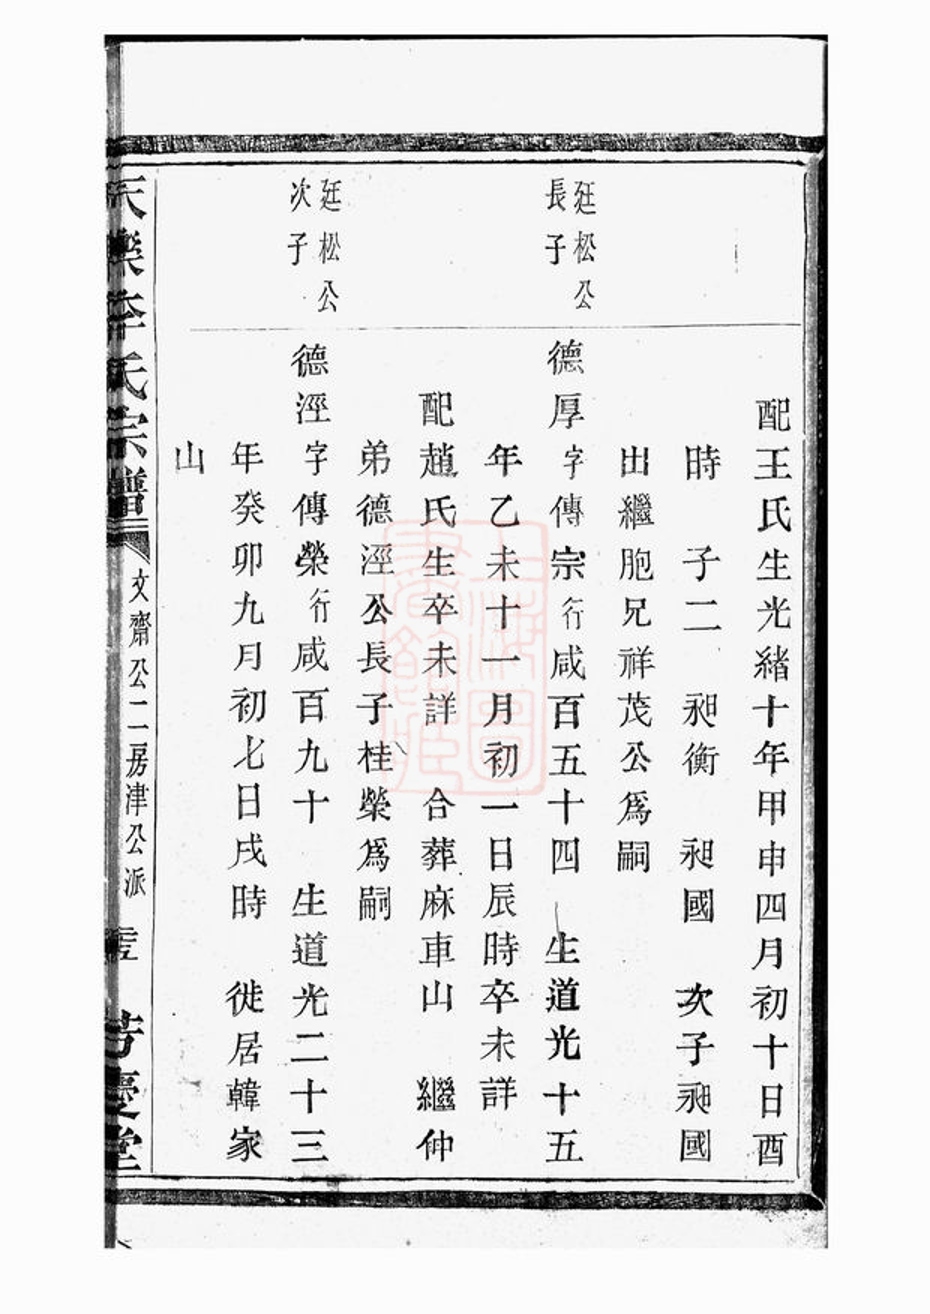 配王氏生光緒十年甲申四月初十日酉
時 子二 昶衡 昶國 次子昶國
出繼胞兄祥茂公爲嗣
廷松公
長子
德厚字傳宗行咸百五十四 生道光十五
年乙未十一月初一日辰時卒未詳
配趙氏生卒未詳 合葬麻車山 繼仲
弟德涇公長子桂榮爲嗣
廷松公
次子
德涇字傳榮行咸百九十 生道光二十三
年癸卯九月初七日戌時 徙居韓家
山
天樂李氏宗譜 文齋公二房津公派 芳慶堂